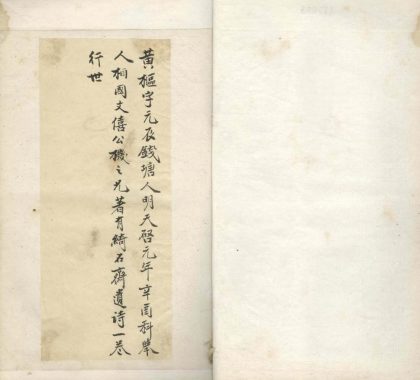 黃樞字元辰錢塘人明天啓元年辛酉科舉
人相國文僖公機之兄著有綺石齋遺詩一卷
行世